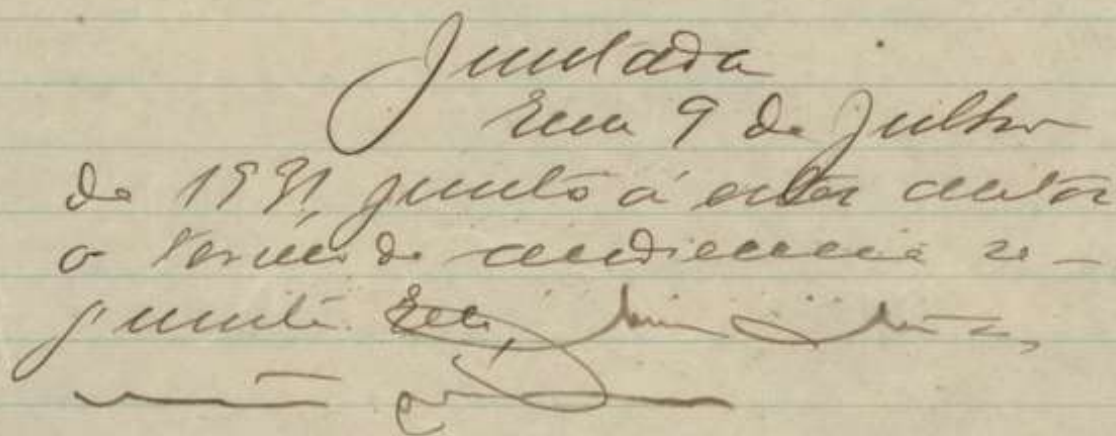 Juntada
Em 9 de Julho
de 1931, junto á estes autos
o termo de audiencia se-
guinte. Eu,